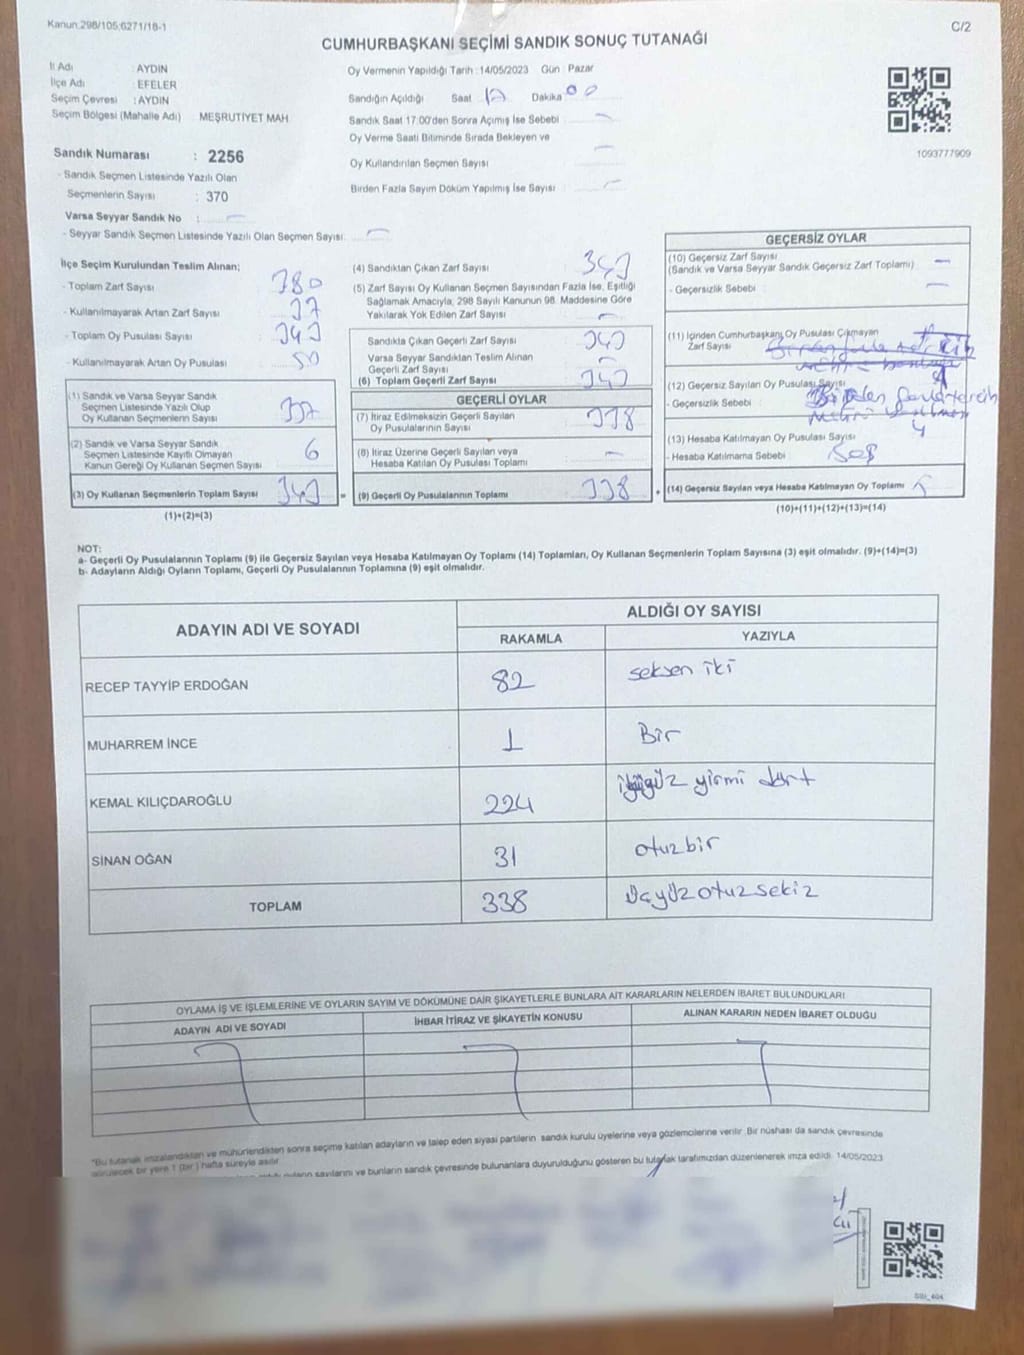 Kanun:298/105;6271/18-1
C/2
CUMHURBAŞKANI SEÇİMİ SANDIK SONUÇ TUTANAĞI
İl Adı : AYDIN
İlçe Adı : EFELER
Seçim Çevresi : AYDIN
Seçim Bölgesi (Mahalle Adı) MEŞRUTİYET MAH.
Sandık Numarası : 2256
- Sandık Seçmen Listesinde Yazılı Olan
Seçmenlerin Sayısı : 370
Varsa Seyyar Sandık No : —
- Seyyar Sandık Seçmen Listesinde Yazılı Olan Seçmen Sayısı: —
Oy Vermenin Yapıldığı Tarih :14/05/2023 Gün : Pazar
Sandığın Açıldığı Saat 17 Dakika 00
Sandık Saat 17:00'den Sonra Açımış İse Sebebi —
Oy Verme Saati Bitiminde Sırada Bekleyen ve
Oy Kullandırılan Seçmen Sayısı —
Birden Fazla Sayım Döküm Yapılmış İse Sayısı —
1093777909
İlçe Seçim Kurulundan Teslim Alınan;
- Toplam Zarf Sayısı 380
- Kullanılmayarak Artan Zarf Sayısı 37
- Toplam Oy Pusulası Sayısı
- Kullanılmayarak Artan Oy Pusulası 50
(1) Sandık ve Varsa Seyyar Sandık
Seçmen Listesinde Yazılı Olup
Oy Kullanan Seçmenlerin Sayısı 337
(2) Sandık ve Varsa Seyyar Sandık
Seçmen Listesinde Kayıtlı Olmayan
Kanun Gereği Oy Kullanan Seçmen Sayısı 6
(3) Oy Kullanan Seçmenlerin Toplam Sayısı 343 =
(1)+(2)=(3)
(4) Sandıktan Çıkan Zarf Sayısı 343
(5) Zarf Sayısı Oy Kullanan Seçmen Sayısından Fazla İse, Eşitliği
Sağlamak Amacıyla, 298 Sayılı Kanunun 98. Maddesine Göre
Yakılarak Yok Edilen Zarf Sayısı —
Sandıkta Çıkan Geçerli Zarf Sayısı 343
Varsa Seyyar Sandıktan Teslim Alınan
Geçerli Zarf Sayısı —
(6) Toplam Geçerli Zarf Sayısı 343
GEÇERLİ OYLAR
(7) İtiraz Edilmeksizin Geçerli Sayılan
Oy Pusulalarının Sayısı 338
(8) İtiraz Üzerine Geçerli Sayılan veya
Hesaba Katılan Oy Pusulası Toplamı —
(9) Geçerli Oy Pusulalarının Toplamı 338 +
GEÇERSİZ OYLAR
(10) Geçersiz Zarf Sayısı
(Sandık ve Varsa Seyyar Sandık Geçersiz Zarf Toplamı) —
- Geçersizlik Sebebi : —
(11) İçinden Cumhurbaşkanı Oy Pusulası Çıkmayan
Zarf Sayısı
(12) Geçersiz Sayılan Oy Pusulası Sayısı
- Geçersizlik Sebebi : Birden
4
(13) Hesaba Katılmayan Oy Pusulası Sayısı
- Hesaba Katılmama Sebebi : Boş
(14) Geçersiz Sayılan veya Hesaba Katılmayan Oy Toplamı 5
(10)+(11)+(12)+(13)=(14)
NOT:
a- Geçerli Oy Pusulalarının Toplamı (9) ile Geçersiz Sayılan veya Hesaba Katılmayan Oy Toplamı (14) Toplamları, Oy Kullanan Seçmenlerin Toplam Sayısına (3) eşit olmalıdır. (9)+(14)=(3)
b- Adayların Aldığı Oyların Toplamı, Geçerli Oy Pusulalarının Toplamına (9) eşit olmalıdır.
ADAYIN ADI VE SOYADI ALDIĞI OY SAYISI
RAKAMLA YAZIYLA
RECEP TAYYİP ERDOĞAN 82 seksen iki
MUHARREM İNCE 1 Bir
KEMAL KILIÇDAROĞLU 224 ikiyüz yirmi dört
SİNAN OĞAN 31 otuzbir
TOPLAM 338 Üçyüzotuzsekiz
OYLAMA İŞ VE İŞLEMLERİNE VE OYLARIN SAYIM VE DÖKÜMÜNE DAİR ŞİKAYETLERLE BUNLARA AİT KARARLARIN NELERDEN İBARET BULUNDUKLARI
ADAYIN ADI VE SOYADI İHBAR İTİRAZ VE ŞİKAYETİN KONUSU ALINAN KARARIN NEDEN İBARET OLDUĞU
*Bu tutanak imzalandıktan ve mühürlendikten sonra seçime katılan adayların ve talep eden siyasi partilerin sandık kurulu üyelerine veya gözlemcilerine verilir. Bir nüshası da sandık çevresinde
görülecek bir yere 1 (bir) hafta süreyle asılır.
oyların sayılarını ve bunların sandık çevresinde bulunanlara duyurulduğunu gösteren bu tutanak tarafımızdan düzenlenerek imza edildi. 14/05/2023